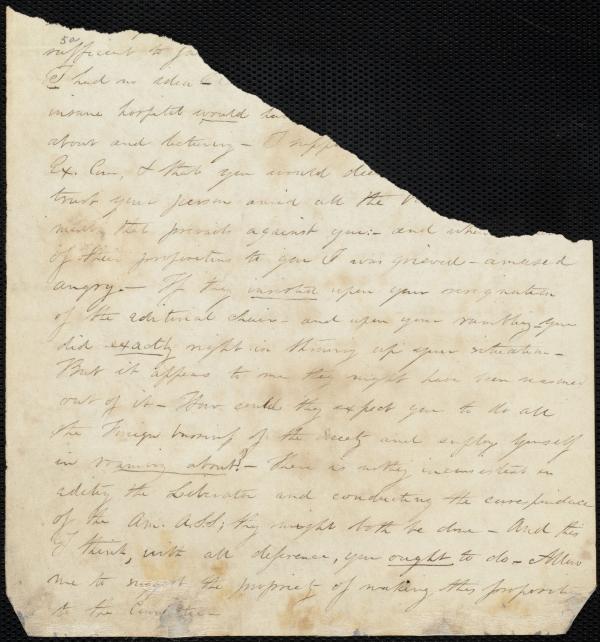 50
sufficient to
I had no idea
insane hospital would
about and lecturing - I
Ex. Com, & that you would
trust your person amid all the
that prevails against you - and when
of their propositions to you I was grieved - amused
angry - If they insisted upon your resignation
of the editorial chair - and upon your rambling - you
did exactly right in throwing up your situation -
But it appears to me they might have been reasoned
out of it - How could they expect you to do all
the Foreign business of the Society and employ yourself
in roaming about? - There is nothing inconsistent in
editing the Liberator and conducting the correspondence
of the Am. A.S.S; they might both be done - And this
I think, with all deference, you ought to do - Allow
me to suggest the propriety of making this proposition
to the Committee -